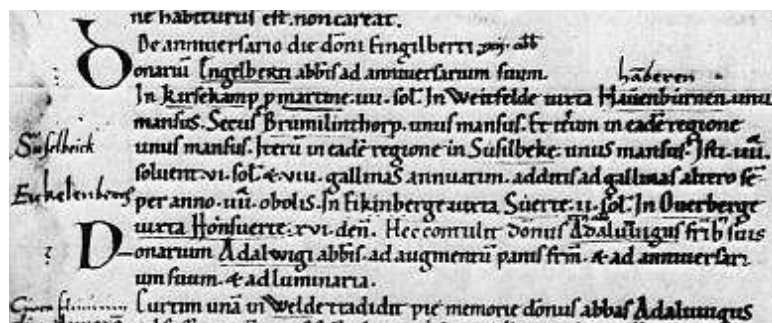 ne habiturus est. non careat.
De anniuersario die dōni Engilberti
Donariū Engelberti abbīs ad anniuersarium suum.
haberen
In kirsekamp p martine .uii. sol. In Weitfelde iuxta Hauenburnen unu
mansus. Secus Brumilincthorp. unus mansus. Et itm in eadē regione
Suselbeick
unus mansus. Iterū in eadē regione in Susilbeke unus mansus. Isti .iiii.
soluent .vi. sol. & .viii. gallinas annuatim. additis ad gallinas altero sē
Enkelenberg
per anno .iiii. obolis. In Eikinberge iuxta Suerte .ii. sol. In Ouerberge
iuxta Honsuerte .xvi. den. Hec contulit donnus Adaluuigus frīb suis
Donarium Adalwigi abbīs. ad augmentū panis frm. & ad anniuersari
um suum. & ad luminaria.
Curtim unā in Welde tradidit pie memorie dōnus abbas Adaluuigus